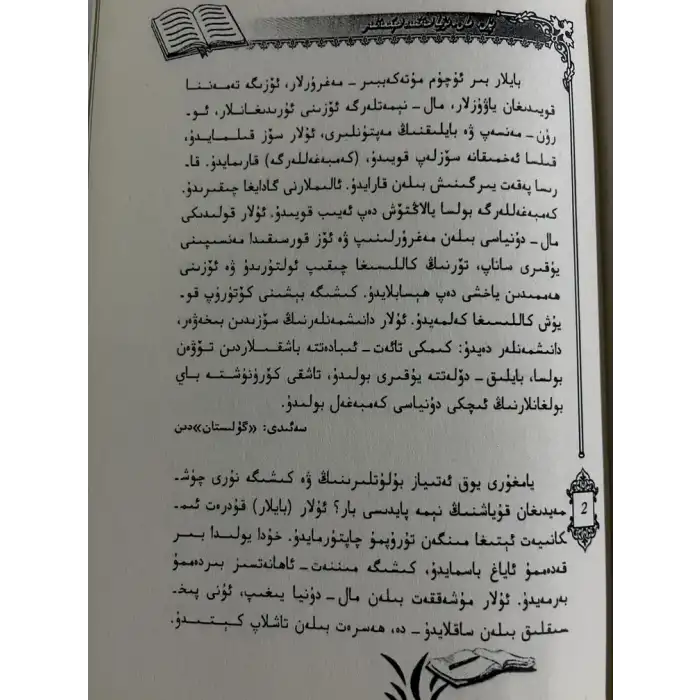 بايلار بىر ئۈچۈم مۇتەكەببىر ـ مەغرۇرلار، ئۆزىگە تەمەننا
قويىدىغان ياۋۇزلار، مال ـ نېمەتلەرگە ئۆزىنى ئۇرىدىغانلار، ئو ـ
رۇن ـ مەنسەپ ۋە بايلىقنىڭ مەپتۇنلىرى، ئۇلار سۆز قىلمايدۇ،
قىلسا ئەخمىقانە سۆزلەپ قويىدۇ، (كەمبەغەللەرگە) قارىمايدۇ. قا ـ
رىسا پەقەت يىرگىنىش بىلەن قارايدۇ. ئالىملارنى گادايغا چىقىرىدۇ.
كەمبەغەللەرگە بولسا يالاڭتۆش دەپ ئەيىب قويىدۇ. ئۇلار قولىدىكى
مال ـ دۇنياسى بىلەن مەغرۇرلىنىپ ۋە ئۆز قورسىقىدا مەنسىپىنى
يۇقىرى ساناپ، تۆرنىڭ كاللىسىغا چىقىپ ئولتۇرىدۇ ۋە ئۆزىنى
ھەممىدىن ياخشى دەپ ھېسابلايدۇ. كىشىگە بېشىنى كۆتۈرۈپ قو ـ
يۇش كاللىسىغا كەلمەيدۇ. ئۇلار دانىشمەنلەرنىڭ سۆزىدىن بىخەۋەر،
دانىشمەنلەر دەيدۇ: كىمكى تائەت ـ ئىبادەتتە باشقىلاردىن تۆۋەن
بولسا، بايلىق ـ دۆلەتتە يۇقىرى بولىدۇ، تاشقى كۆرۈنۈشتە باي
بولغانلارنىڭ ئىچكى دۇنياسى كەمبەغەل بولىدۇ.
سەئىدى: «گۈلىستان»دىن
يامغۇرى يوق ئەتىياز بۇلۇتلىرىنىڭ ۋە كىشىگە نۇرى چۈش ـ
مەيدىغان قۇياشنىڭ نېمە پايدىسى بار؟ ئۇلار (بايلار) قۇدرەت ئىم ـ
كانىيەت ئېتىغا مىنگەن تۇرۇپمۇ چاپتۇرمايدۇ. خۇدا يولىدا بىر
قەدەممۇ ئاياغ باسمايدۇ، كىشىگە مىننەت ـ ئاھانەتسىز بىردەممۇ
بەرمەيدۇ. ئۇلار مۇشەققەت بىلەن مال ـ دۇنيا يىغىپ، ئۇنى پىخ ـ
سىقلىق بىلەن ساقلايدۇ ـ دە، ھەسرەت بىلەن تاشلاپ كېتىدۇ.
2